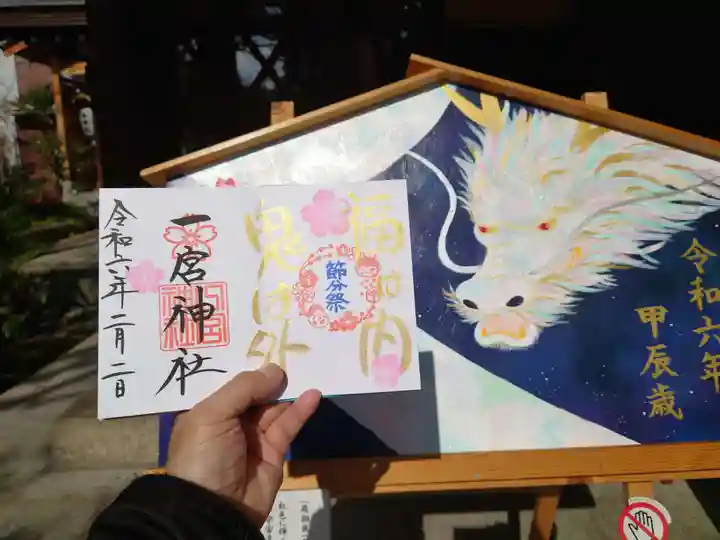 福は内
鬼は外
節分祭
一宮神社
令和六年二月二日
令和六年
甲辰歳